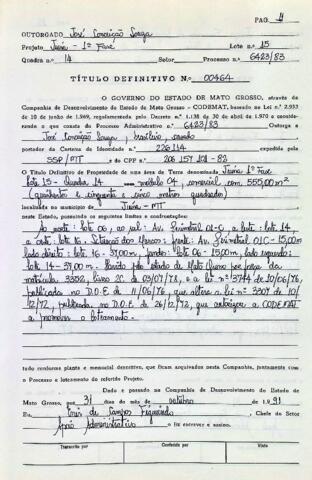 PAG. 4
OUTORGADO José Conceição Souza
Projeto Juína - 1ª Fase Lote n.º 15
Quadra n.º 14 Setor Processo n.º 6423/83
TÍTULO DEFINITIVO N.º 00464
O GOVERNO DO ESTADO DE MATO GROSSO, através da
Companhia de Desenvolvimento do Estado de Mato Grosso - CODEMAT, baseado na Lei n.º 2.933
de 10 de junho de 1.969, regulamentada pelo Decreto n.º 1.138 de 30 de abril de 1.970 e considerando
o que consta do Processo Administrativo n.º 6423/83 Outorga a
José Conceição Souza, brasileiro, casado
portador da Carteira de Identidade n.º 226114 expedida pela
SSP/MT e do CPF n.º 206 157 101-82
O Título Definitivo de Propriedade de uma área de Terra denominada Juína 1ª Fase
Lote 15 - Quadra 14 módulo 04, comercial com 555,00 m²
(quinhentos e cinquenta e cinco metros quadrados)
localizada no município de Juína - MT
neste Estado, possuindo os seguintes limites e confrontações:
Ao norte: lote 06, ao sul: Av. Perimetral 01-C, a leste: lote 14,
a oeste: lote 16. Situação dos Marcos: frente: Av. Perimetral 01C - 15,00m
lado direito: lote 16 - 37,00m, fundo: lote 06 - 15,00m, lado esquerdo:
lote 14 - 37,00m. Havido pelo estado de Mato Grosso por força da
matrícula 3302, livro 2C de 03/07/78, e a lei nº 3744 de 10/06/76,
publicada no D.O.E de 11/06/76, que altera a lei nº 3307 de 10/
12/72, publicada no D.O.E de 26/12/72, que autorizou a CODEMAT
a promover o loteamento.
tudo conforme planta e memorial descritivo, que ficam arquivados nesta Companhia, juntamente com
o Processo e loteamento do referido Projeto.
Dado e passado na Companhia de Desenvolvimento do Estado de
Mato Grosso, aos 31 dias do mês de outubro de 1.991
Eu, Enir de Campos Figueiredo Chefe do Setor
Apoio Administrativo o fiz escrever e assino.
Transcrito por Conferido por Visto